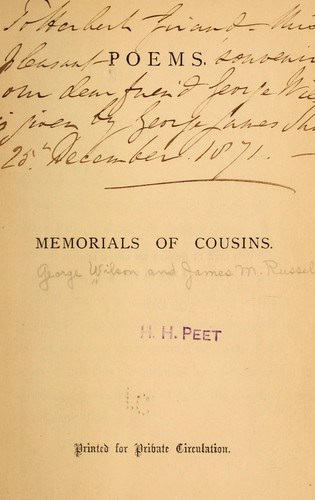 To Herbert Giraud – this
pleasant souvenir
POEMS.
our dear friend George
is given by George James
25th December. 1871. –
MEMORIALS OF COUSINS.
George Wilson and James M. Russel
H. H. PEET
Printed for Private Circulation.